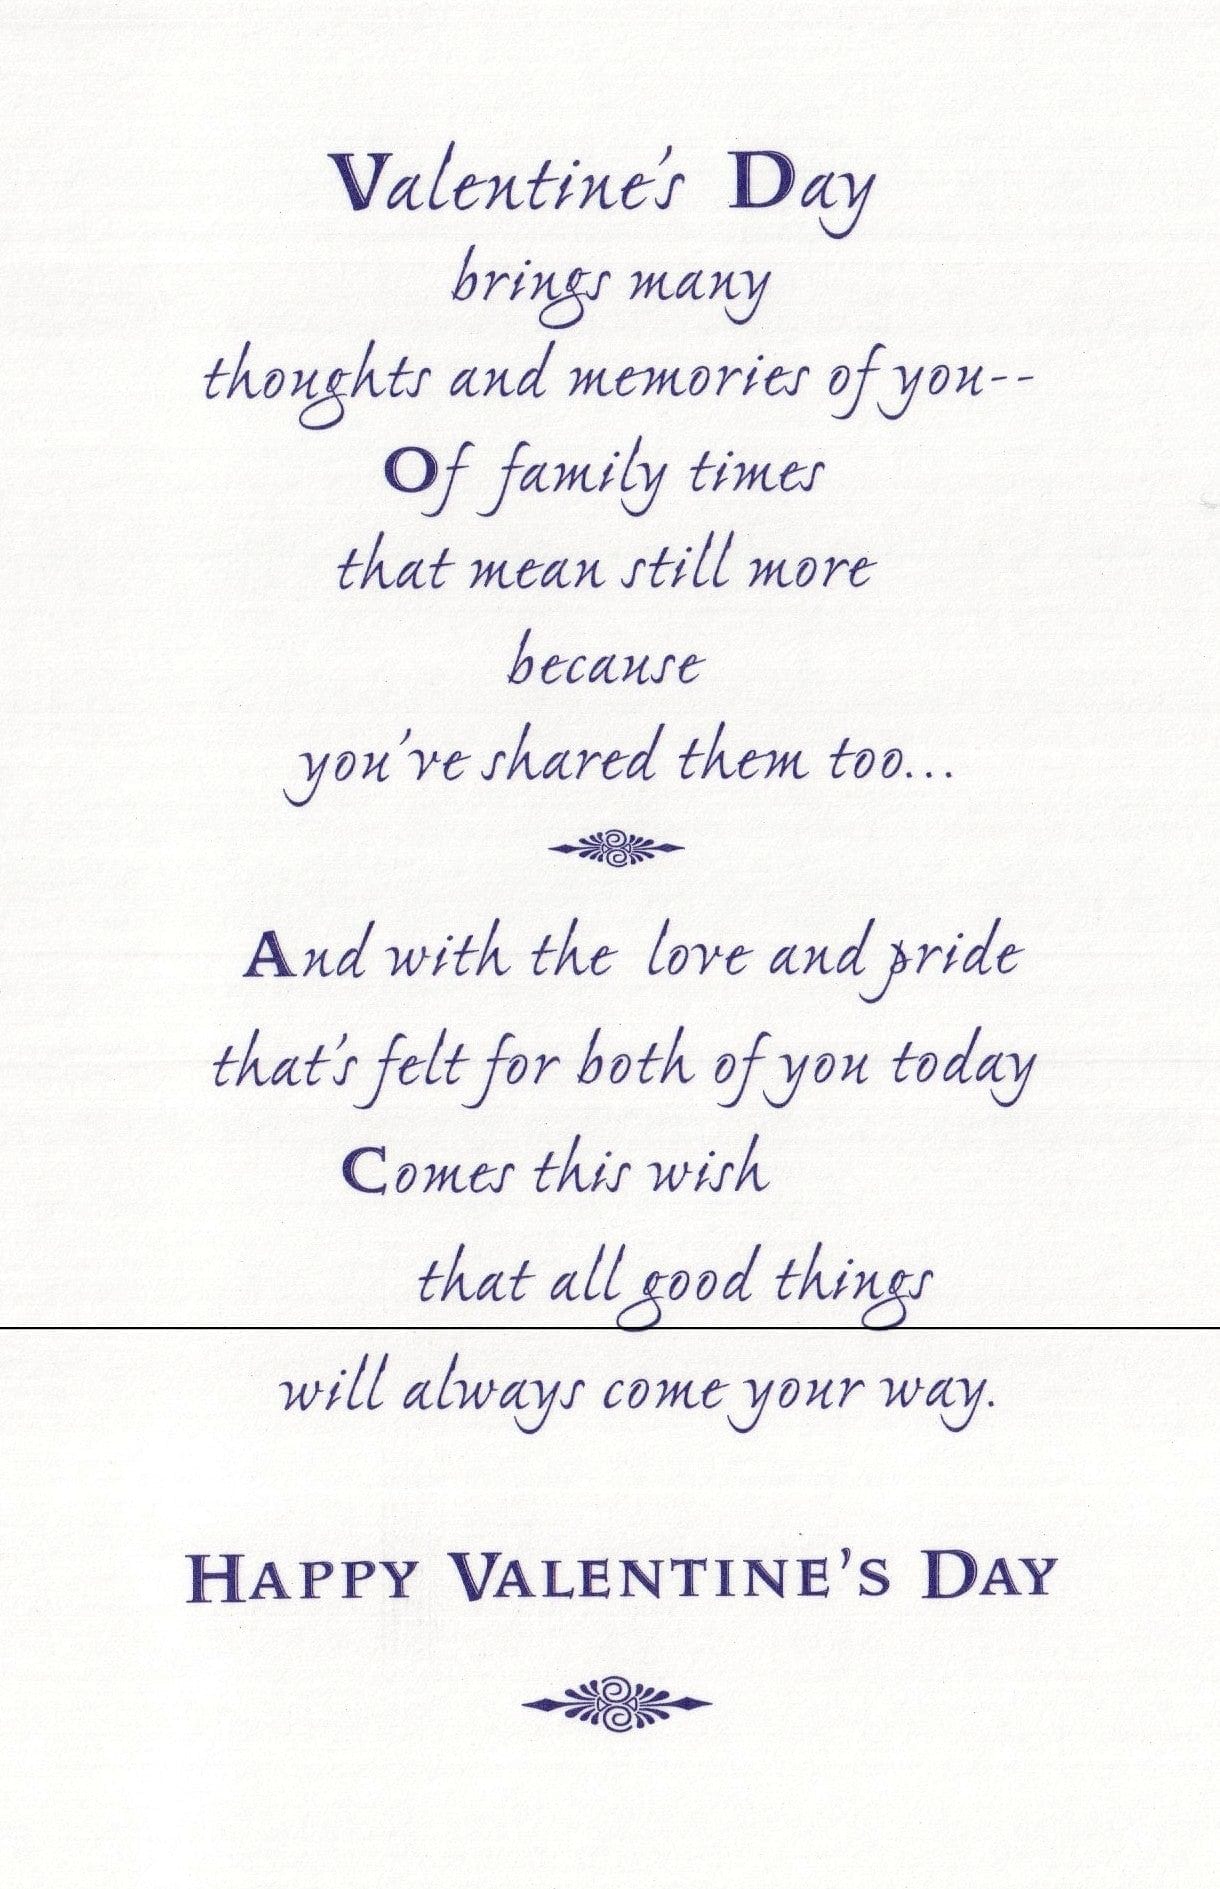 Valentine's Day
brings many
thoughts and memories of you--
Of family times
that mean still more
because
you've shared them too...
And with the love and pride
that's felt for both of you today
Comes this wish
that all good things
will always come your way.
HAPPY VALENTINE'S DAY